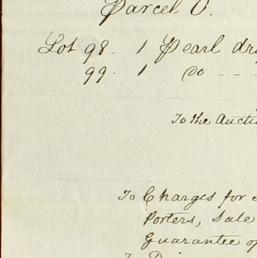 Parcel V.
Lot 98. 1 Pearl dr
99. 1 Do - - -
To the Aucti
To Charges for
Porters, Sale
Guarantee of
To